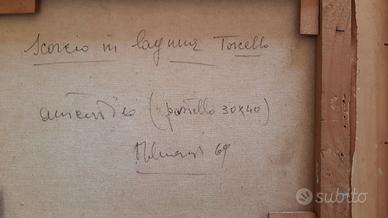 Scorcio in laguna Torcello
autentico (pastello 30x40)
69
subito